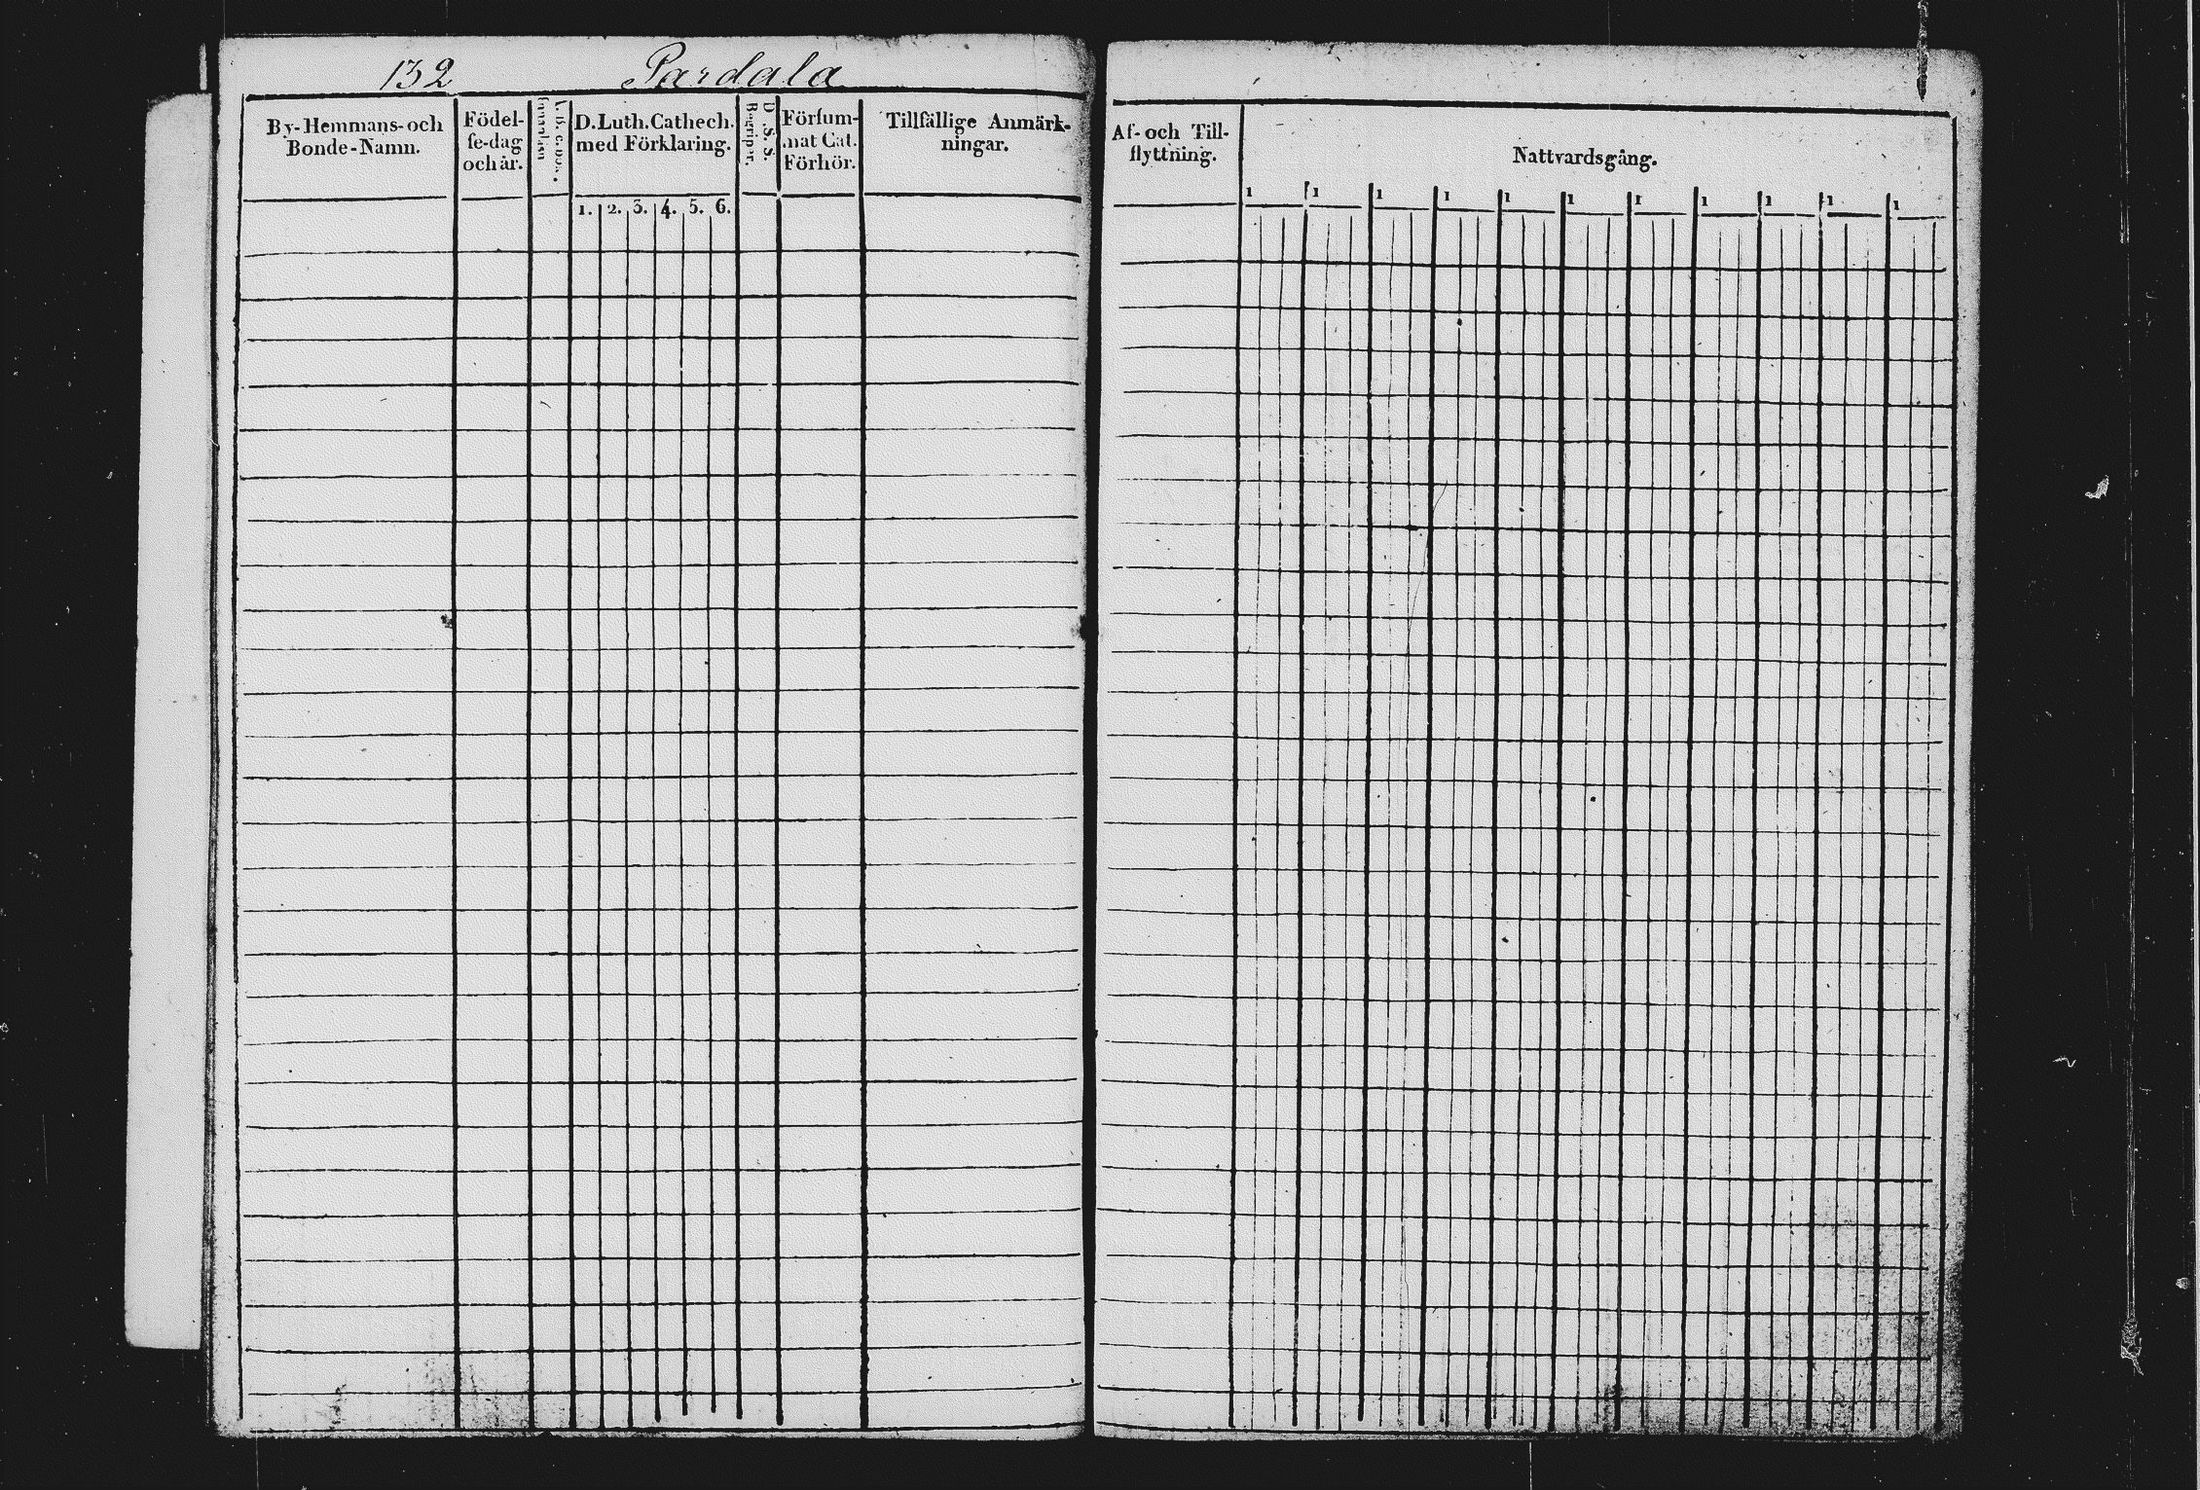 132 Pardala
By-Hemmans- och Bonde-Namn.
Födel-
se-dag
och år.
D. Luth. Cathech.
med Förklaring.
1. 2. 3. 4. 5. 6.
D. S. S.
Begriper.
Försum-
mat Cat.
Förhör.
Tillfällige Anmärk-
ningar.
Af- och Till-
flyttning.
Nattvardsgång.
1 1 1 1 1 1 1 1 1 1 1